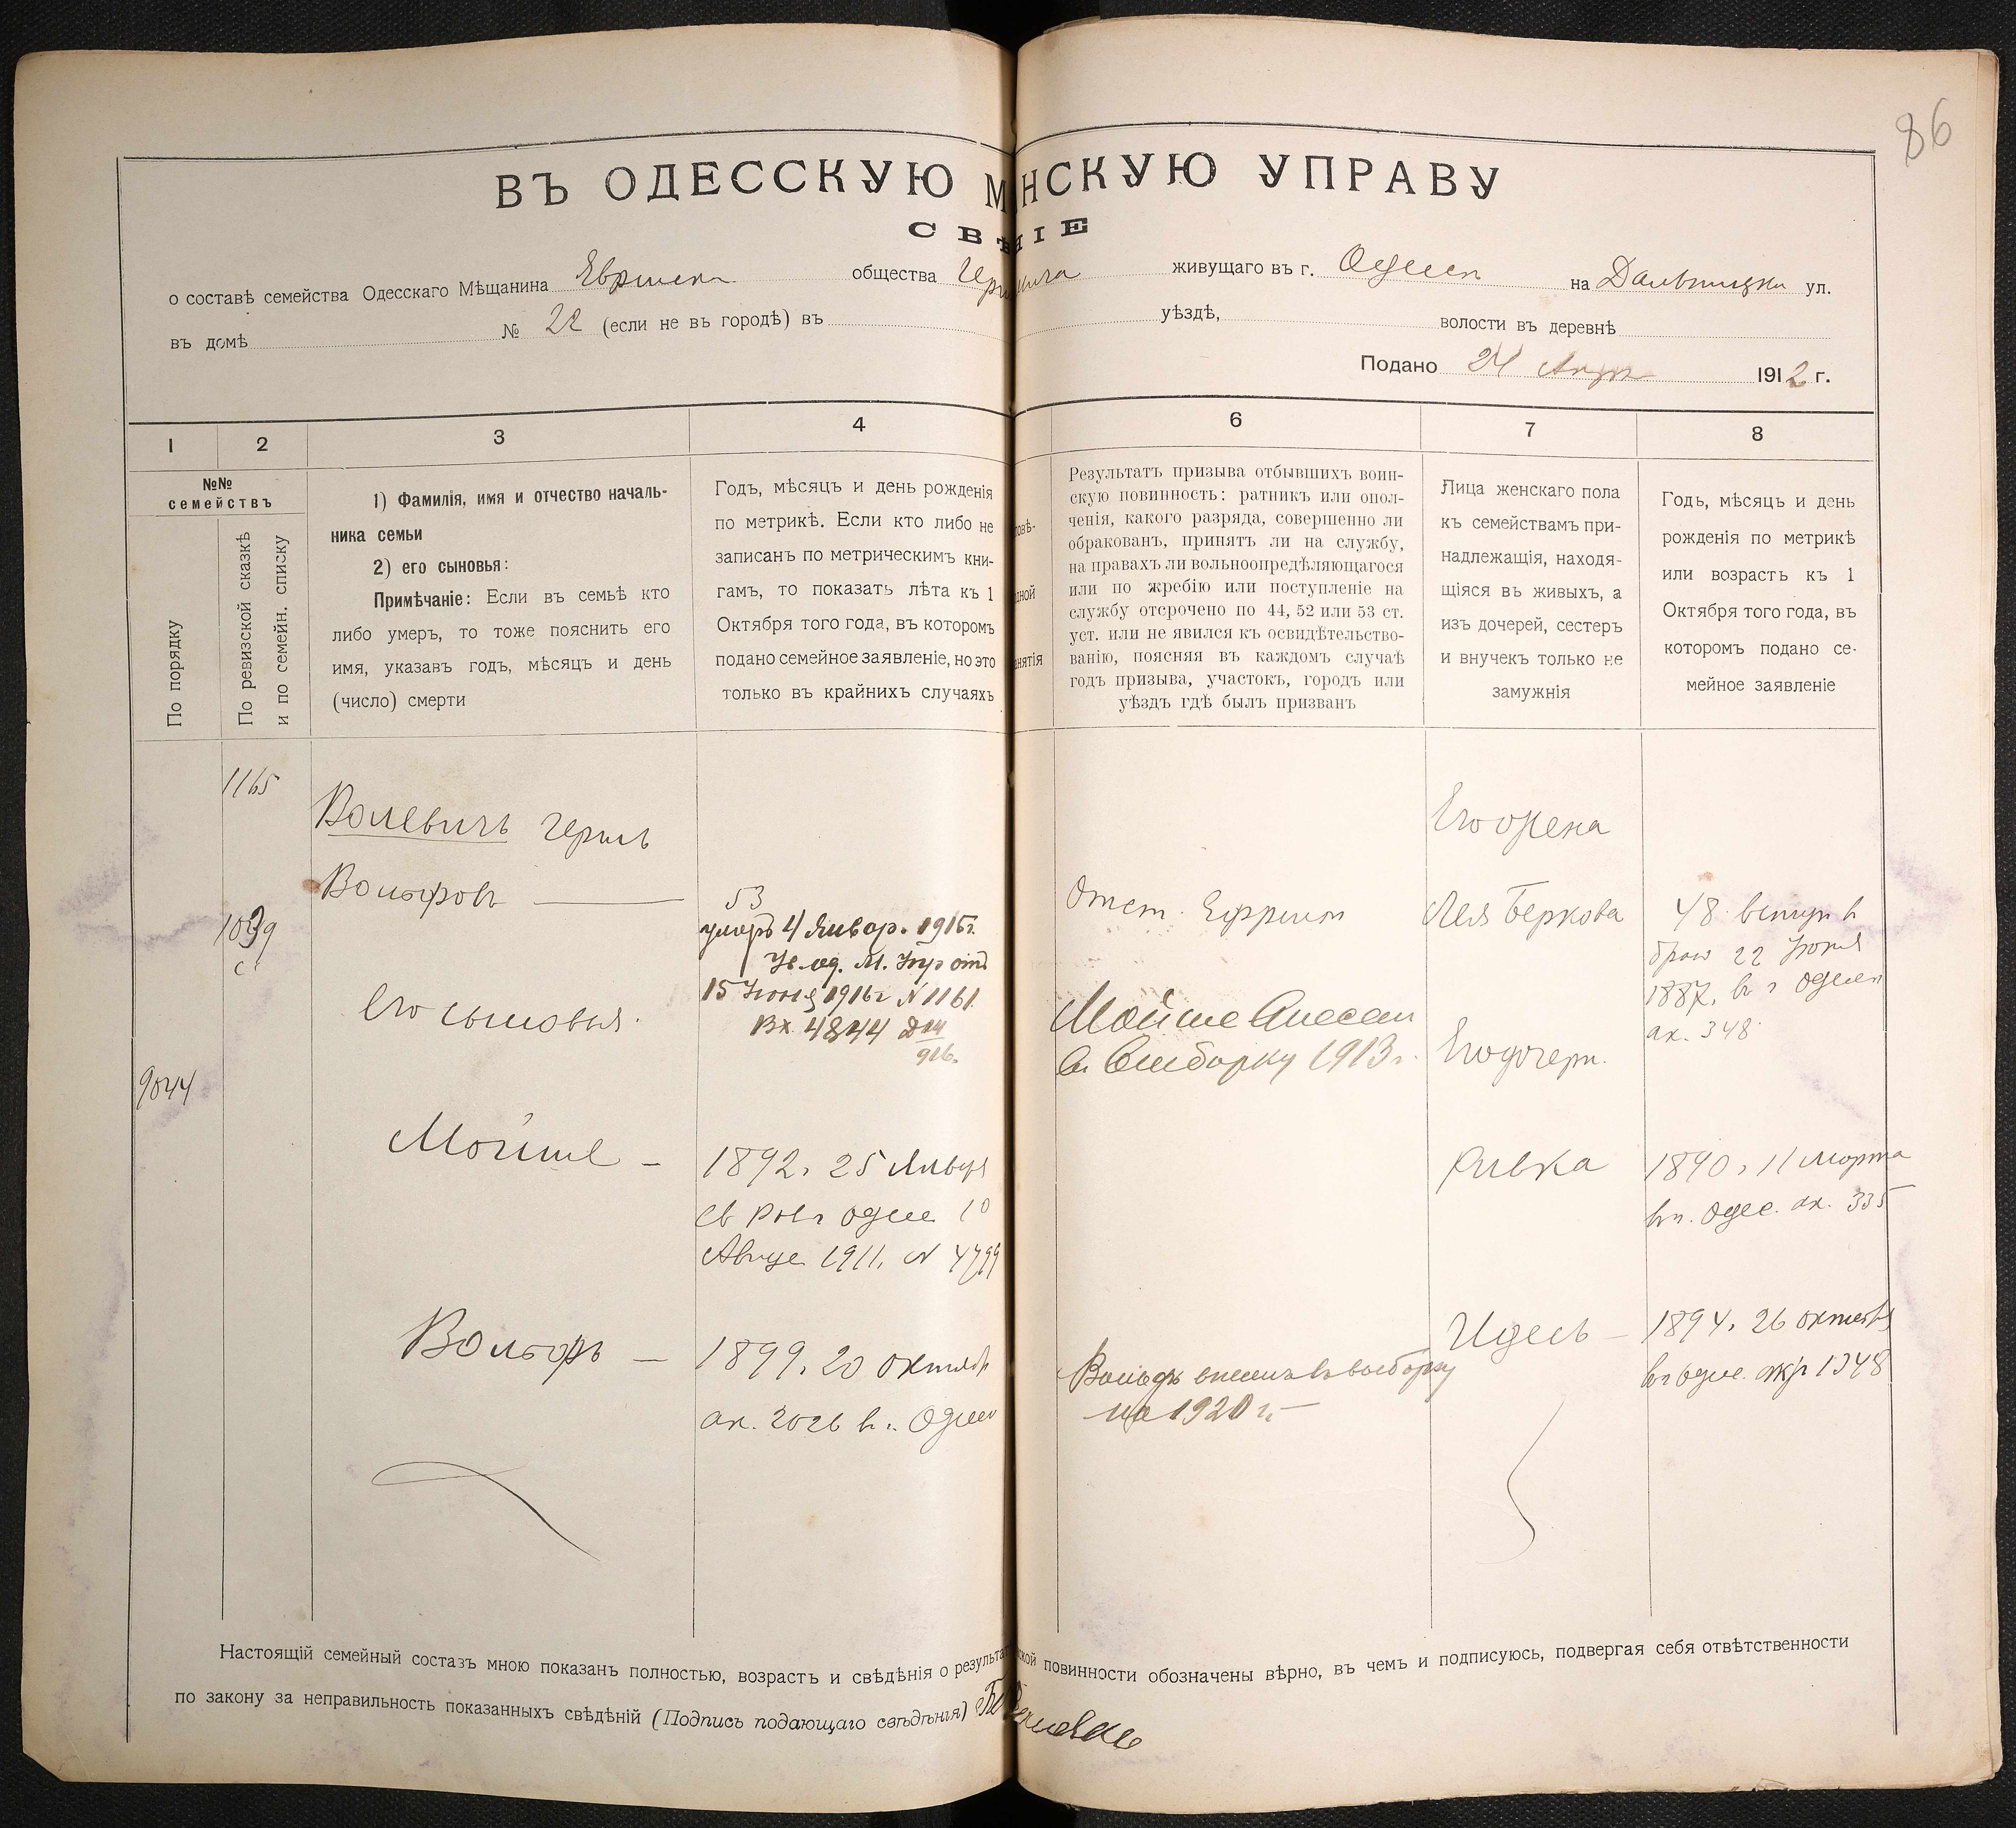 86
ВЪ ОДЕССКУЮ М НСКУЮ УПРАВУ
СВѢ НІЕ
о составѣ семейства Одесскаго Мѣщанина общества живущаго въ г. Одессѣ на Дальницкой ул.
въ домѣ № 22 (если не въ городѣ) въ уѣздѣ, волости въ деревнѣ
Подано 24 1912 г.
1 2 3 4 6 7 8
№№
семействъ
По порядку
По ревизской сказкѣ
и по семейн. списку
1) Фамилія, имя и отчество началь-
ника семьи
2) его сыновья:
Примѣчаніе: Если въ семьѣ кто
либо умеръ, то тоже пояснить его
имя, указавъ годъ, мѣсяцъ и день
(число) смерти
Годъ, мѣсяцъ и день рожденія
по метрикѣ. Если кто либо не
записанъ по метрическимъ кни-
гамъ, то показать лѣта къ 1
Октября того года, въ которомъ
подано семейное заявленіе, но это
только въ крайнихъ случаяхъ
Результатъ призыва отбывшихъ воин-
скую повинность: ратникъ или опол-
ченія, какого разряда, совершенно ли
обракованъ, принятъ ли на службу,
на правахъ ли вольноопредѣляющагося
или по жребію или поступленіе на
службу отсрочено по 44, 52 или 53 ст.
уст. или не явился къ освидѣтельство-
ванію, поясняя въ каждомъ случаѣ
годъ призыва, участокъ, городъ или
уѣздъ гдѣ былъ призванъ
Лица женскаго пола
къ семействамъ при-
надлежащія, находя-
щіяся въ живыхъ, а
изъ дочерей, сестеръ
и внучекъ только не
замужнія
Годъ, мѣсяцъ и день
рожденія по метрикѣ
или возрастъ къ 1
Октября того года, въ
которомъ подано се-
мейное заявленіе
1165
Волевичъ Герш
Вольфовъ
53
умеръ 4 Январ. 1916г.
15 Іюня 1916г N 1161.
Вх. 4844
916.
Его сыновья.
9044
Мойше –
1892, 25 Января
1911, N 4799
Вольфъ –
1899, 20 октября
ак. 2026 в г. Одессѣ
Мойше внесен
въ выборку 1913 г.
Вольфъ внесенъ въ выборку
на 1920 г.
Его жена
Лея Беркова
48 вступ. в
брак 22 Іюня
1887, в г Одессѣ
ак. 348
Его дочери.
Ривка
1890, 11 Марта
в г. Одес. ак. 335
Идесь –
1894, 26 октября
Настоящій семейный составъ мною показанъ полностью, возрастъ и свѣдѣнія о результат ской повинности обозначены вѣрно, въ чемъ и подписуюсь, подвергая себя отвѣтственности
по закону за неправильность показанныхъ свѣдѣній (Подпись подающаго свѣдѣнія)